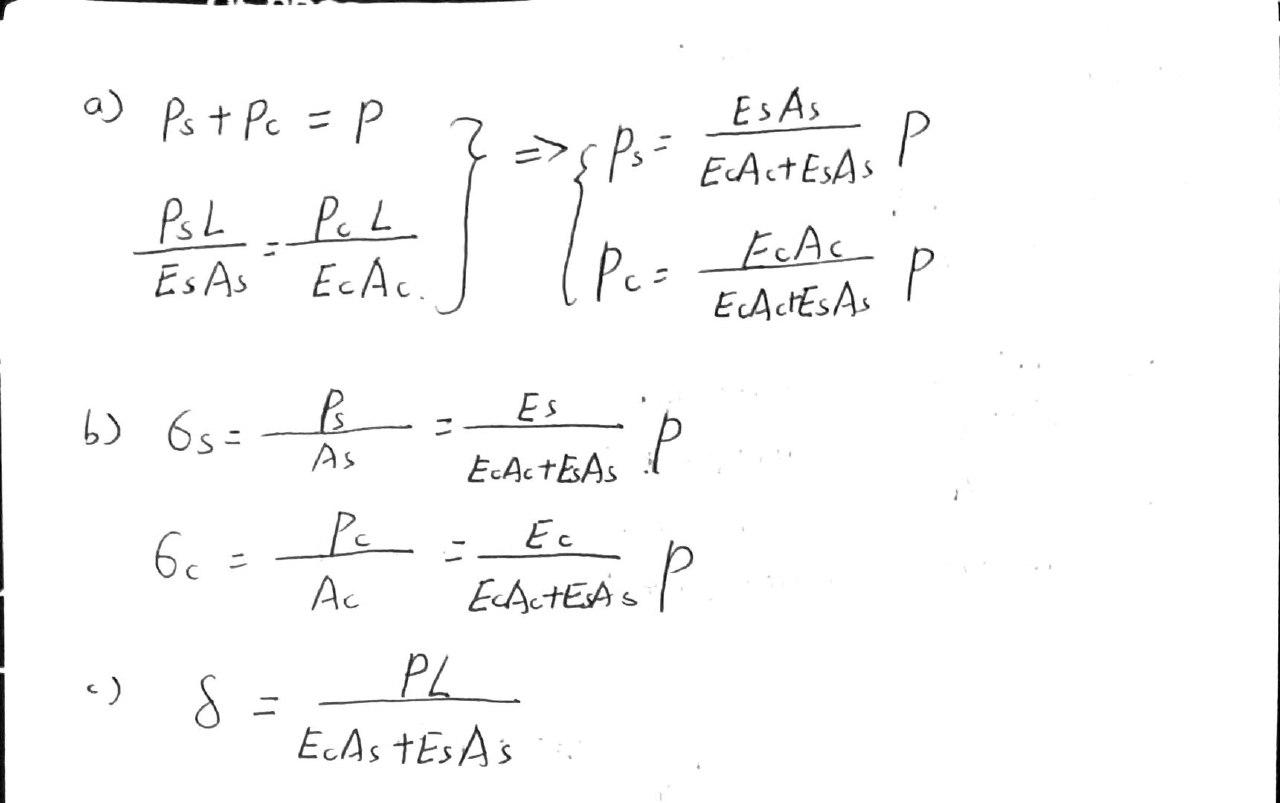 a) Ps + Pc = P
PsL / EsAs = PcL / EcAc.
} => { Ps = EsAs / EcAc+EsAs P
Pc = EcAc / EcAc+EsAs P
b) σs = Ps / As = Es / EcAc+EsAs P
σc = Pc / Ac = Ec / EcAc+EsAs P
c) δ = PL / EcAs+EsAs